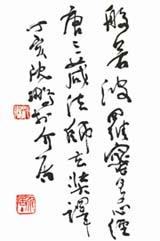 般若波羅蜜多心經
唐三藏法師玄奘譯
丁亥沈鵬於介居